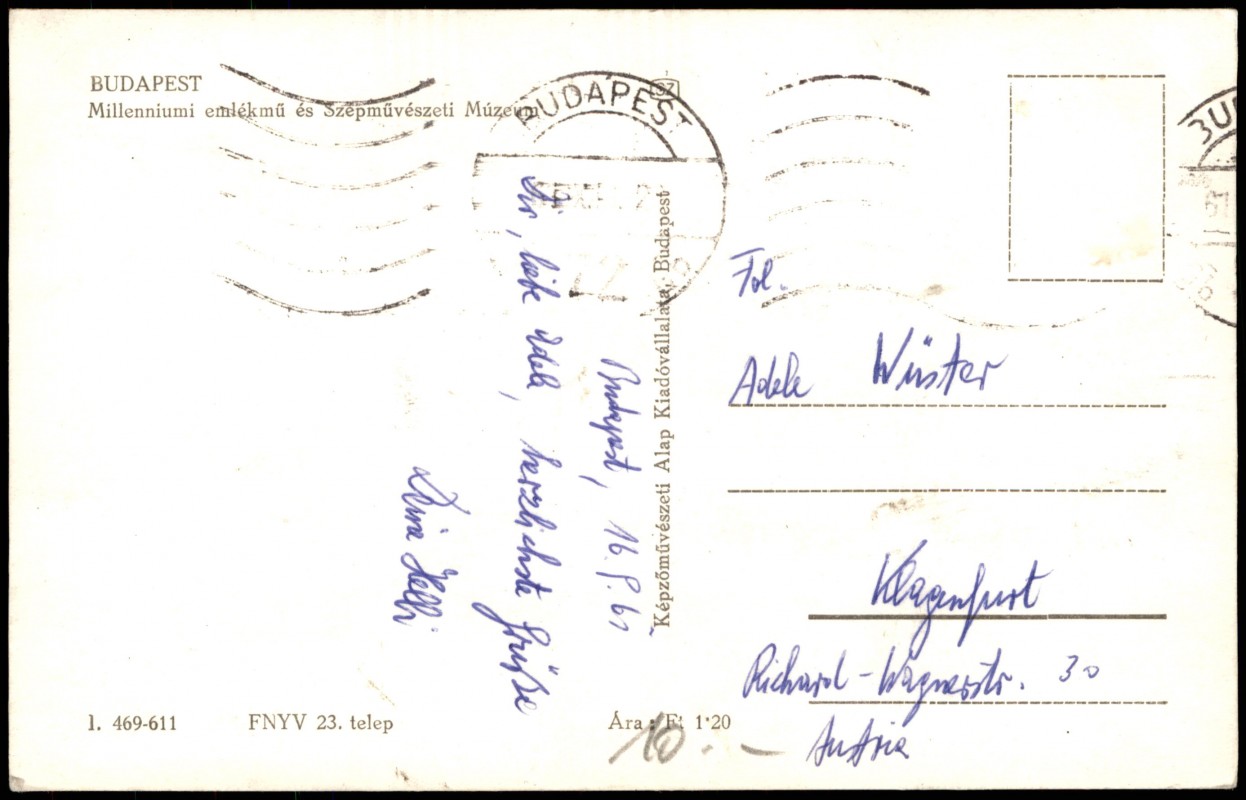 BUDAPEST
Millenniumi emlékmű és Szépművészeti Múzeum
BUDAPEST
72
BU
Budapest,
Dir, liebe Adele, herzlichste Grüße
Képzőművészeti Alap Kiadóvállalata, Budapest
Frl.
Adele Wüster
Klagenfurt
Richard-Wagnerstr. 30
Austria
l. 469-611
FNYV 23. telep
Ára: Ft 1·20
10.-